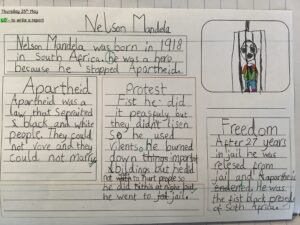 Thursday 26th May
LO - to write a report
Nelson Mandela
Nelson Mandela was born in 1918
in South Africa. he was a hero
because he stopped Apartheid.
Apartheid
Apartheid was a
law that Sepraited
black and white
people. They could
not vove and they
could not marry.
Protest
Fist he did
it peasfuly but
they didn't lisen
so he used
vilents. He burned
down things importent
bildings but he did
not want to hurt people so
he did this at night but
he went to jail.
Freedom
After 27 years
in jail he was
relesed from
jail and Apartheid
endented. he was
the fist black preside
of Soth Africa.